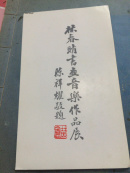 林春晴书画音乐作品展
陈祥耀敬题